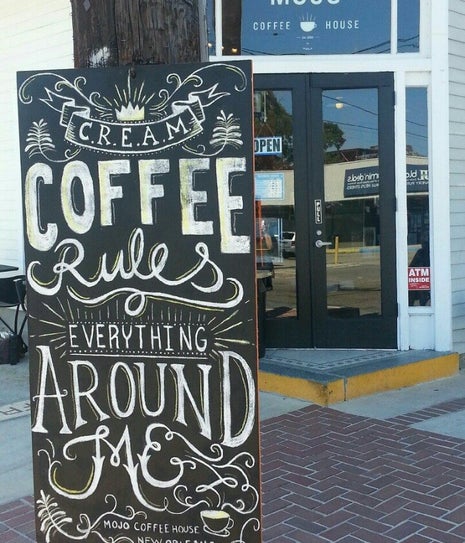 MOJO
COFFEE HOUSE
C.R.E.A.M
COFFEE
Rules
EVERYTHING
AROUND
ME
MOJO COFFEE HOUSE
NEW ORLEANS
OPEN
PULL
ATM
INSIDE